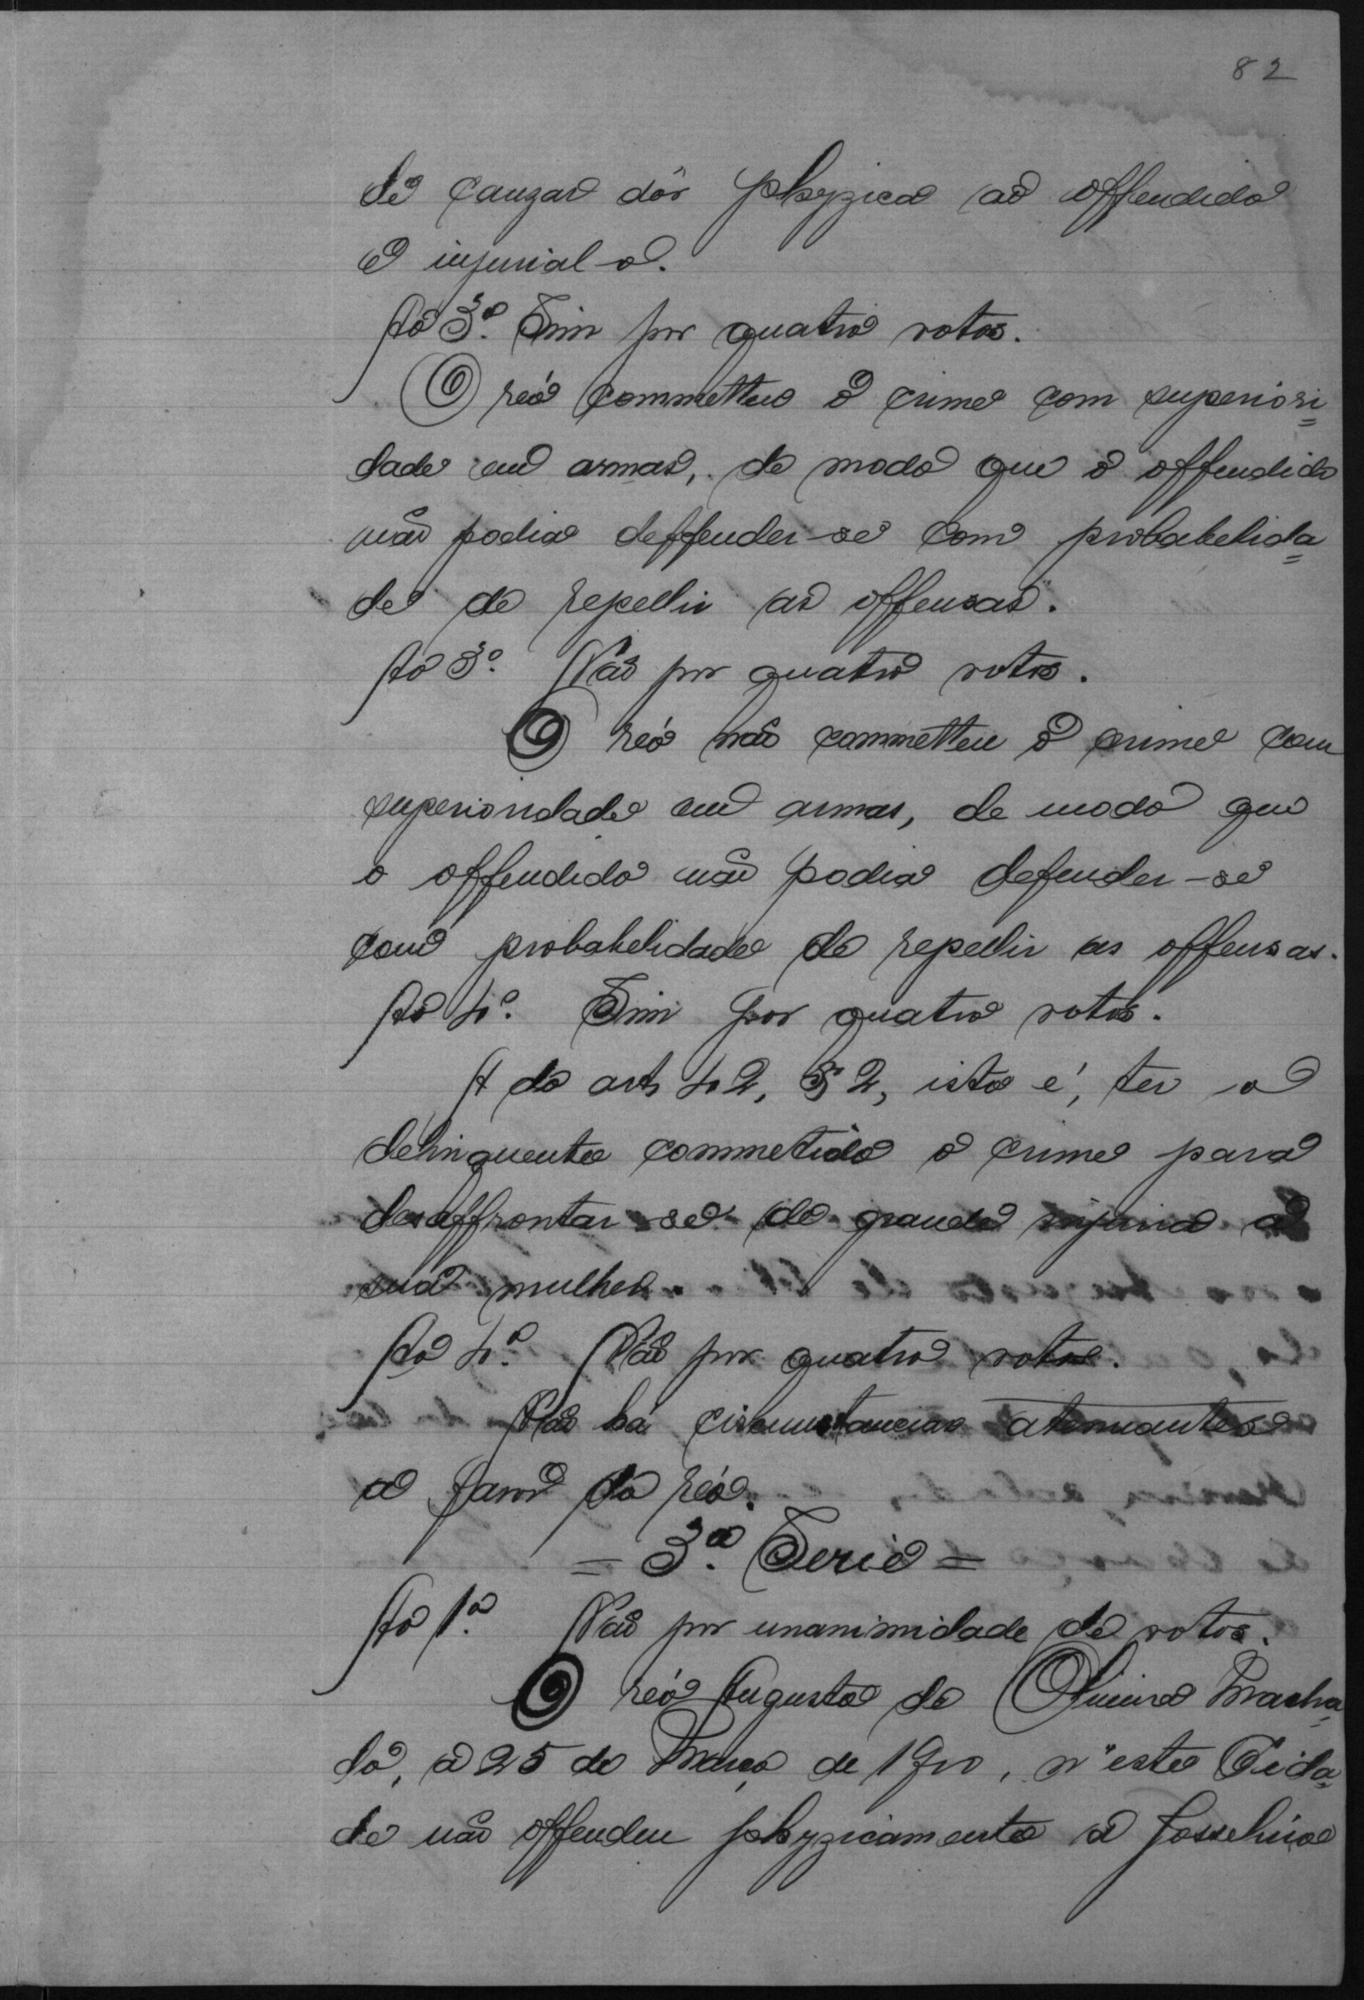 82
de cauzar dôr phyzica ao offendido
e injurial-o.
Ao 3º. Sim por quatro votos.
O reó commetteu o crime com superiori=
dade em armas, de modo que o offendido
não podia deffender-se com probabelida=
de de repellir as offensas.
Ao 3º. Não por quatro votos.
O reó não commetteu o crime com
superioridade em armas, de modo que
o offendido não podia defender-se
com probabelidade de repellir as offensas.
Ao 4º. Sim por quatro votos.
A do art 42, § 2, isto é, ter o
delinquente commetido o crime para
desaffrontar-se de grande injuria a
sua mulher.
Ao 4º. Não por quatro votos.
Não há circumstancias attenuantes
a favor do reó.
= 3ª. Serie =
Ao 1º. Não por unanimidade de votos.
O reó Augusto de Oliveira Macha=
do, a 25 de Março de 1910, n'esta Cida=
de não offendeu phyzicamente a Josselino